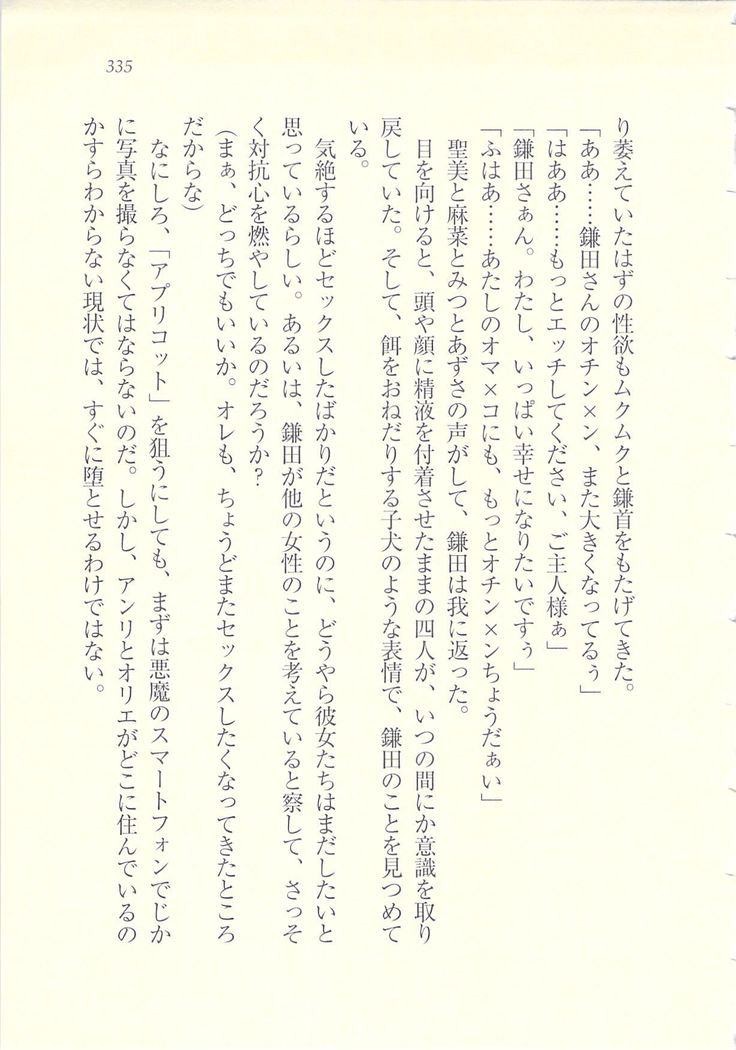 335
り萎えていたはずの性欲もムクムクと鎌首をもたげてきた。
「ああ……鎌田さんのオチン×ン、また大きくなってるぅ」
「はああ……もっとエッチしてください、ご主人様ぁ」
「鎌田さぁん。わたし、いっぱい幸せになりたいですぅ」
「ふはあ……あたしのオマ×コにも、もっとオチン×ンちょうだぁい」
聖美と麻菜とみつとあずさの声がして、鎌田は我に返った。
目を向けると、頭や顔に精液を付着させたままの四人が、いつの間にか意識を取り
戻していた。そして、餌をおねだりする子犬のような表情で、鎌田のことを見つめて
いる。
気絶するほどセックスしたばかりだというのに、どうやら彼女たちはまだしたいと
思っているらしい。あるいは、鎌田が他の女性のことを考えていると察して、さっそ
く対抗心を燃やしているのだろうか？
(まぁ、どっちでもいいか。オレも、ちょうどまたセックスしたくなってきたところ
だからな)
なにしろ、「アプリコット」を狙うにしても、まずは悪魔のスマートフォンでじか
に写真を撮らなくてはならないのだ。しかし、アンリとオリエがどこに住んでいるの
かすらわからない現状では、すぐに堕とせるわけではない。